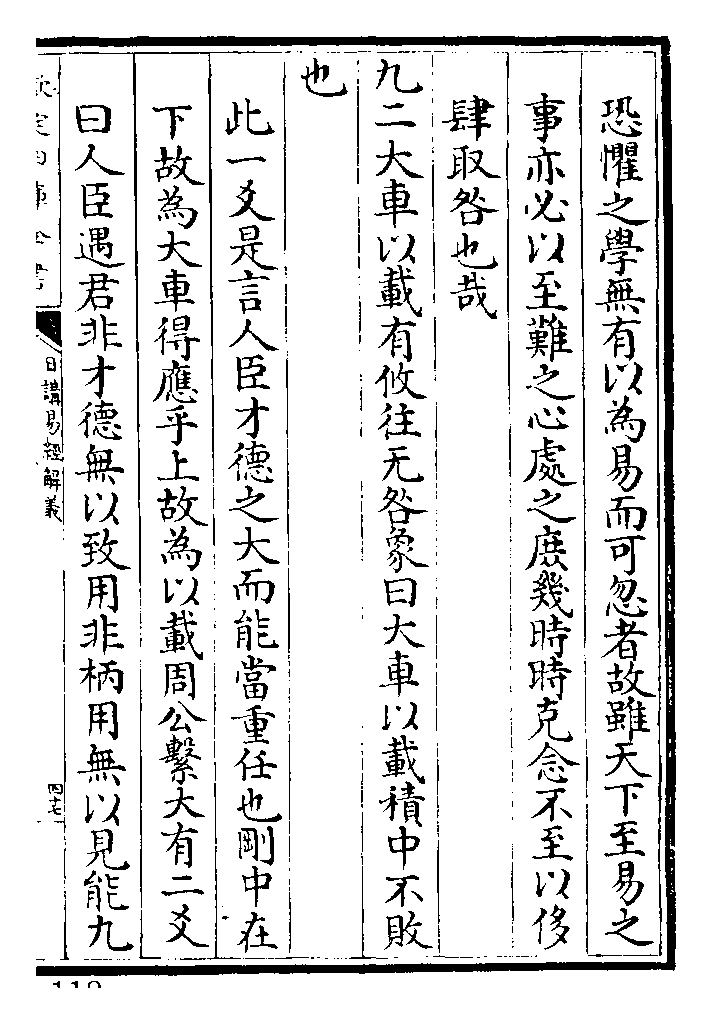 恐懼之學無有以為易而可忽者故雖天下至易之
事亦必以至難之心處之庶幾時時克念不至以侈
肆取咎也哉
九二大車以載有攸往无咎象曰大車以載積中不敗
也
此一爻是言人臣才德之大而能當重任也剛中在
下故為大車得應乎上故為以載周公繫大有二爻
曰人臣遇君非才德無以致用非柄用無以見能九
欽定四庫全書
日講易經解義
四十七